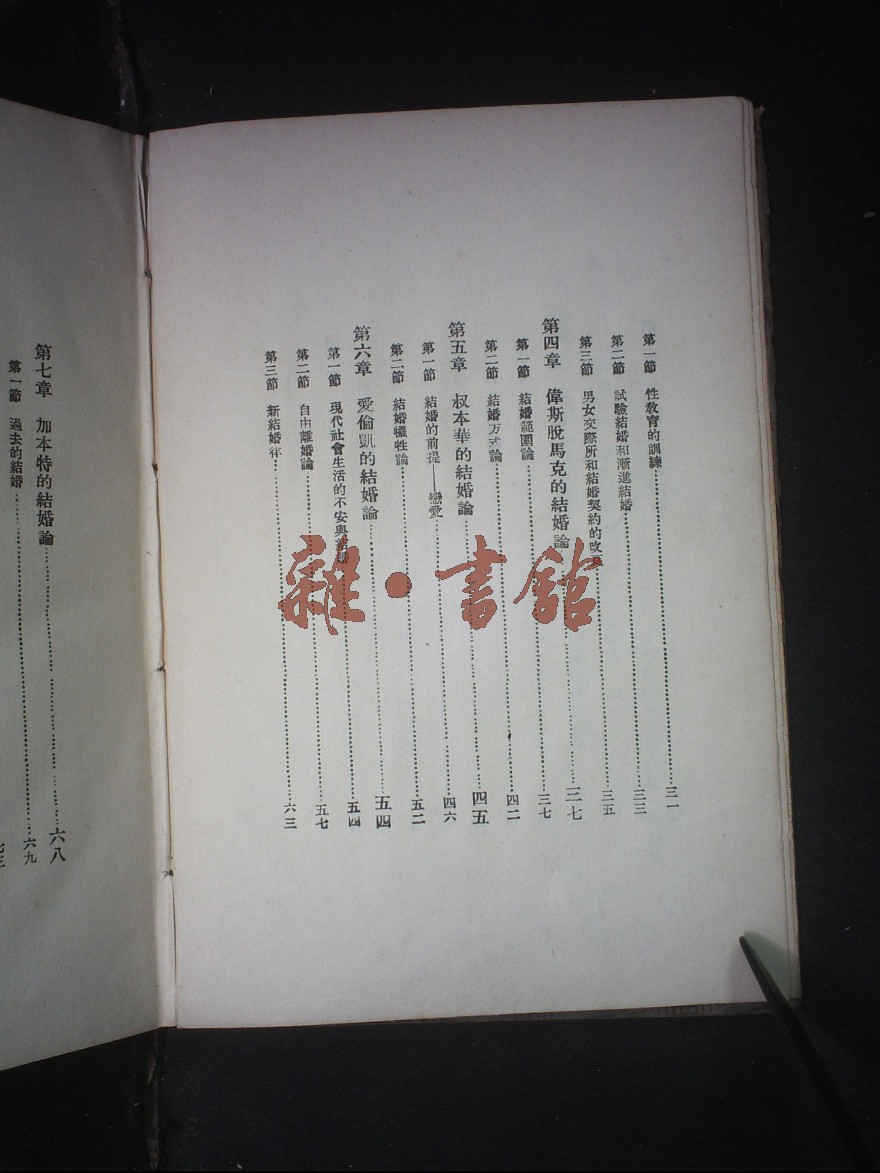 第一節 性教育的訓練……三一
第二節 試驗結婚和漸進結婚……三三
第三節 男女交際所和結婚契約的改……三五
第四章 偉斯脫馬克的結婚論……三七
第一節 結婚範圍論……三七
第二節 結婚方式論……四二
第五章 叔本華的結婚論……四五
第一節 結婚的前提——戀愛……四六
第二節 結婚犧牲論……五二
第六章 愛倫凱的結婚論……五四
第一節 現代社會生活的不安與結婚……五四
第二節 自由離婚論……五七
第三節 新結婚律……六三
第七章 加本特的結婚論……六八
第一節 過去的結婚……六九
七三
雜·書館